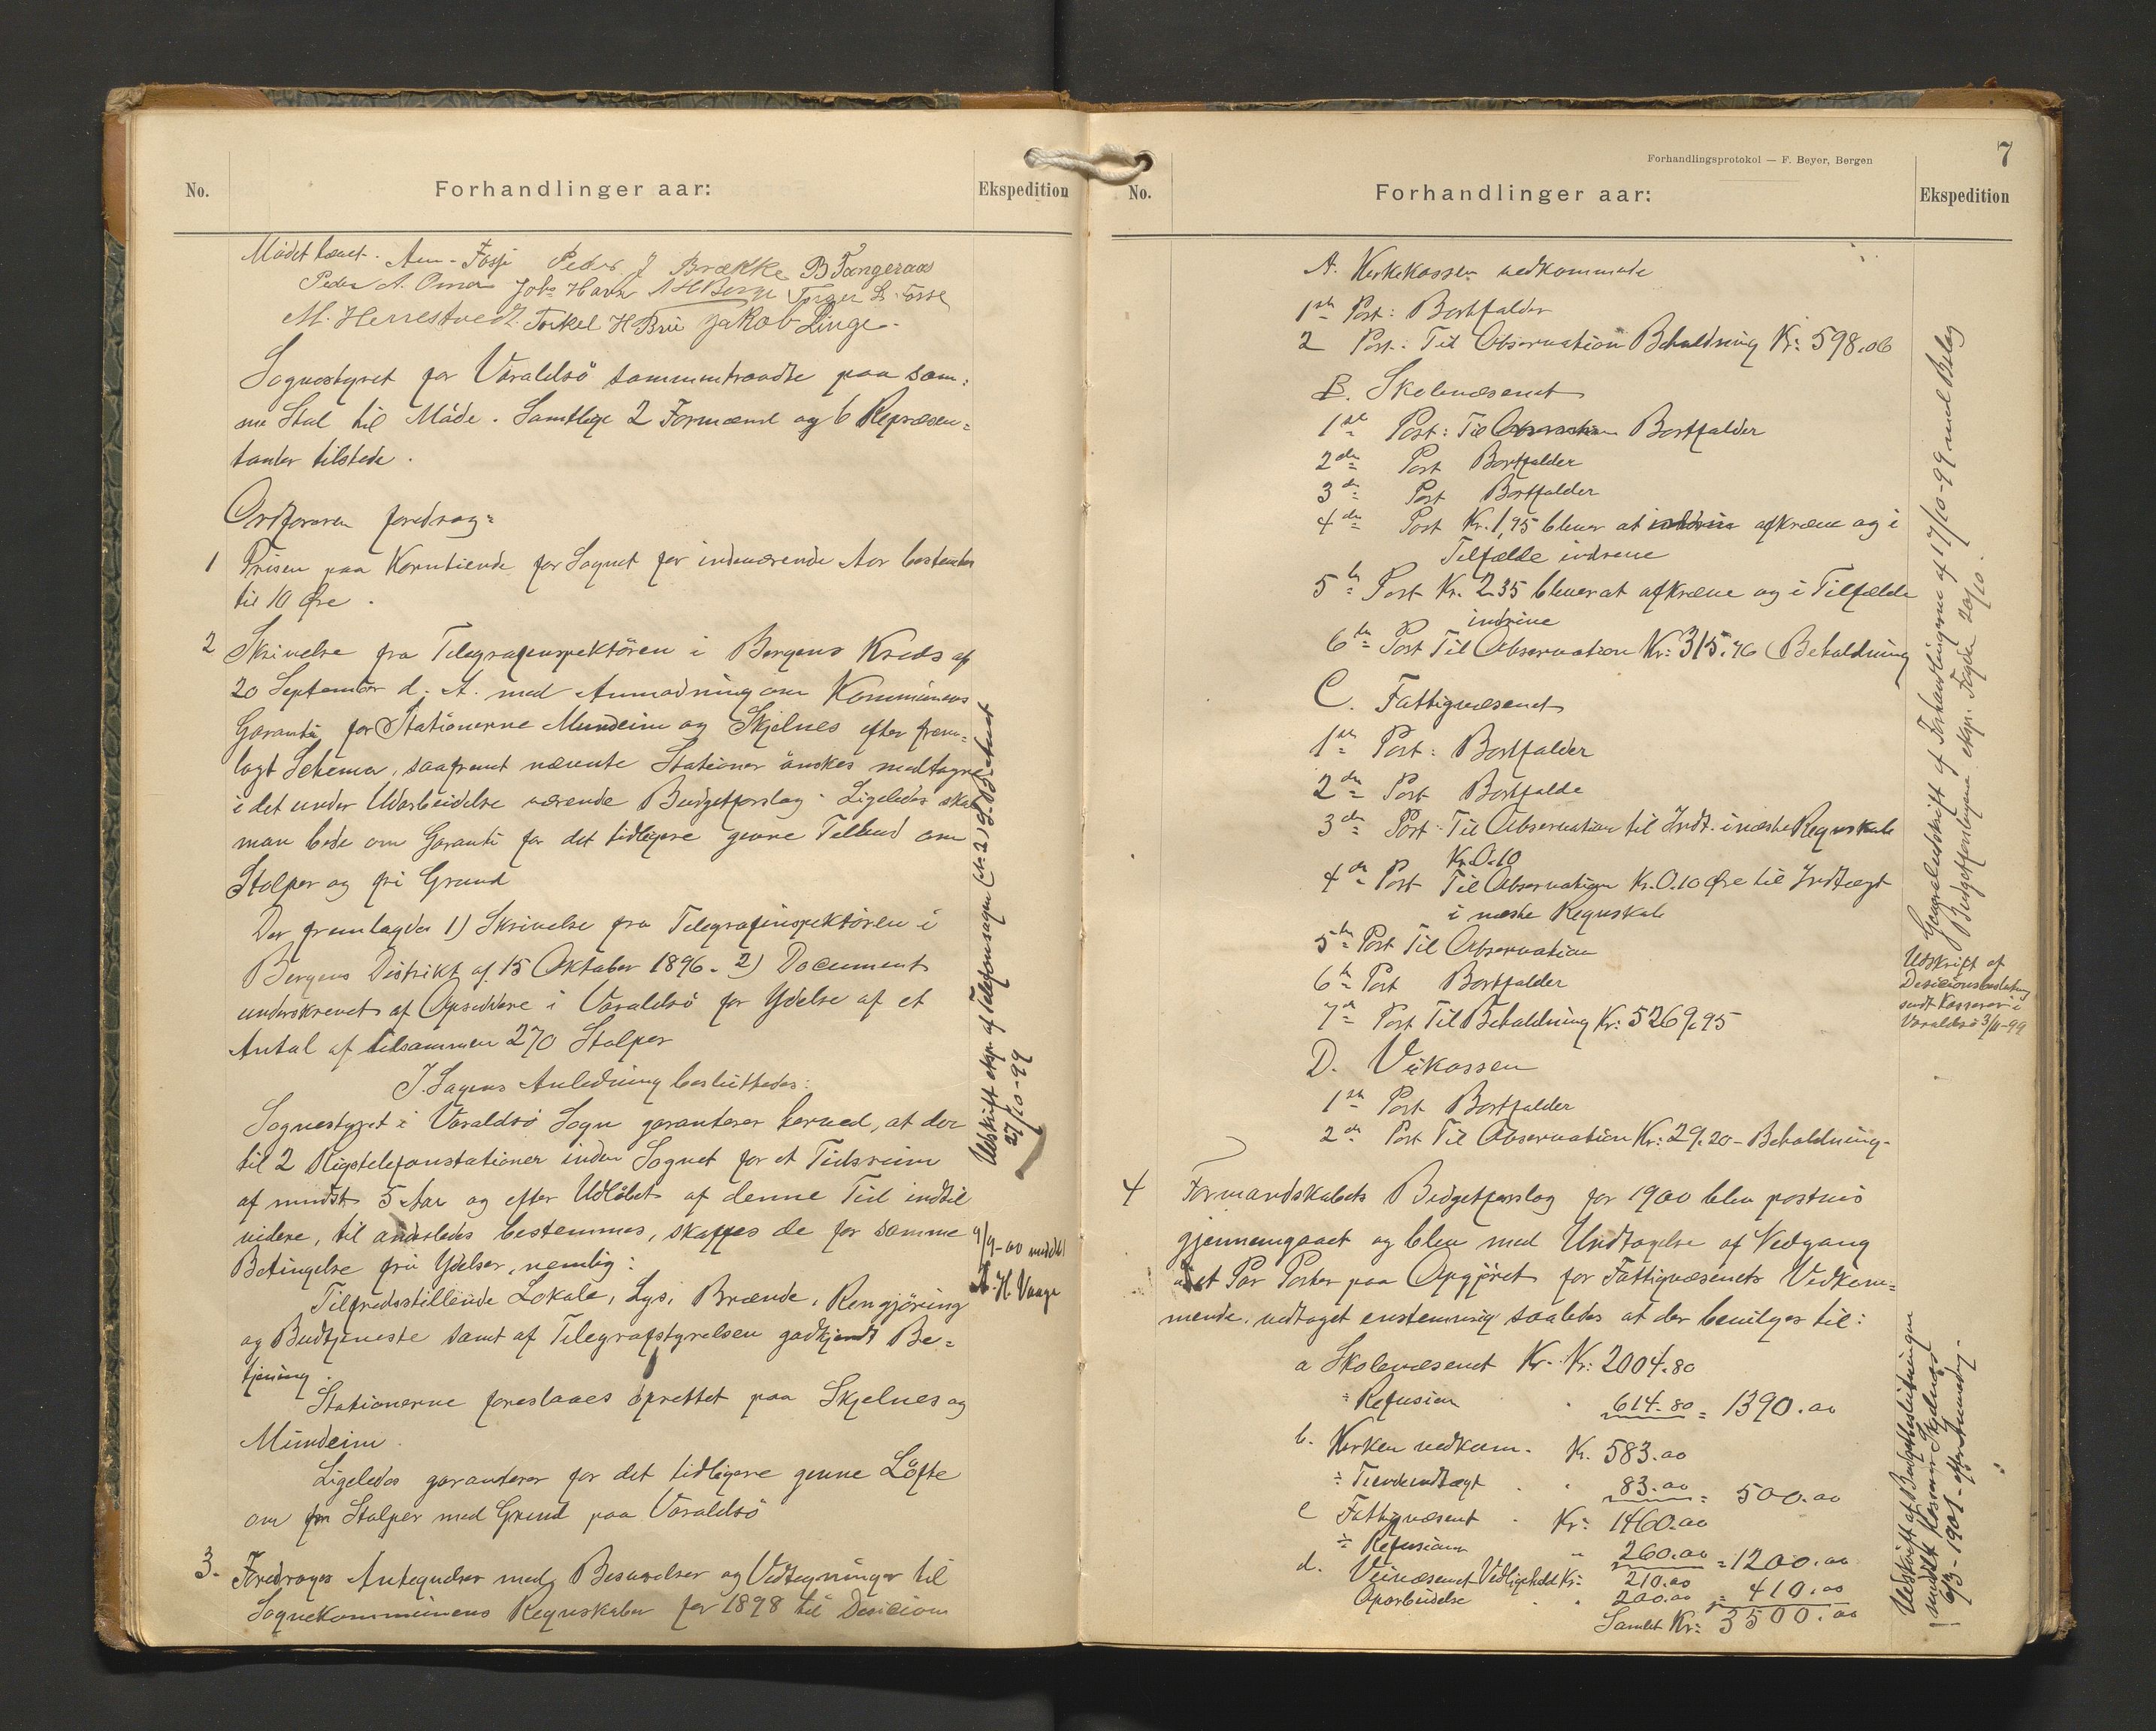 No.
Forhandlinger aar:
Ekspedition
Mødet hævet. Peder J Brække B Tangeraas
Peder A. Omer Johs Havn AHBerge Torger L. Fosse
M. Herrestvedt. Torkel H Brü Jakob Linge.
Sognestyret for Varaldsö sammentraadte paa sam:
me Stal til Möde. Samtlige 2 Formænd og 6 Repræsen=
tanter tilstede.
Ordføreren foredrog:
1 Prisen paa Korntiende for Sognet for indeværende Aar bestemtes
til 10 Øre.
2 Skrivelse fra Telegrafinspektören i Bergens Kreds af
20 September d. A. med Anmodning om Kommunens
Garanti for Stationerne Mundeim og Skjelnes efter frem=
lagt Schema, saafremt nævnte Stationer önskes medtagne
i det under Udarbeidelse værende Budgetforslag. Ligeledes skal
man bede om Garanti for det tidligere givne Tilbud om
Stolper og fri Grund
Der fremlagdes 1) Skrivelse fra Telegrafinspektören i
Bergens Distrikt af 15 Oktober 1896. 2) Document
underskrevet af Opsiddere i Varaldsö for Ydelse af et
Antal af tilsammen 270 Stolper
I Sagens Anledning besluttedes:
Sognestyret i Varaldsö Sogn garanterer herved, at der
til 2 Rigstelefonstationer inden Sognet for et Tidsrum
af mindst 5 Aar og efter Udlöbet af denne Tid indtil
videre, til anderledes bestemmes, skaffes de for samme
Betingelse frie Ydelser, nemlig:
Tilfredsstillende Lokale, Lys, Brænde, Rengjöring
og Budtjeneste samt af Telegrafstyrelsen godkjendt Be=
tjening.
Stationerne foreslaaes oprettet paa Skjelnes og
Mundeim.
Ligeledes garanterer for det tidligere givne Löfte
om Stolper med Grund paa Varaldsö
3. Foredroges Antegnelser med Besvarelser og Vedtegninger til
Sognekommunens Regnskaber for 1898 til Decision
Udskrift eksp. af Telefonsagen (No. 2)
27/10-99
9/9-00 meddelt
A. H. Vaage
Forhandlingsprotokol — F. Beyer, Bergen
7
No.
Forhandlinger aar:
Ekspedition
A. Kirkekassen vedkommende
1ste Post: Bortfalder
2 Post: Til Observation Beholdning Kr: 598.06
B. Skolevæsenet
1ste Post: Til Observation Bortfalder
2den Post Bortfalder
3die Post Bortfalder
4de Post Kr. 1,95 bliver at afkræve og i
Tilfælde inddrive
5te Post Kr. 2.35 bliver at afkræve og i Tilfælde
inddrive
6te Post Til Observation Kr: 315.76 Beholdning
C. Fattigvæsenet
1ste Post: Bortfalder
2den Post Bortfalde
3die Post: Til Observation til Indt. i næste Regnskab
Kr. 0.10
4de Post Til Observation Kr. 0.10 Øre til Indtægt
i næste Regnskab
5te Post Til Observation
6te Post Bortfalder
7de Post Til Beholdning Kr: 5269.95
D. Veikassen
1ste Post Bortfalder
2den Post Til Observation Kr: 29.20 - Beholdning.
4 Formandskabets Budgetforslag for 1900 blev postvis
gjennemgaaet og blev med Undtagelse af Vedgang
et Par Poster paa Opgjöret for Fattigvæsenets Vedkom=
mende, vedtaget enstemmig saaledes at der bevilges til:
a Skolevæsenet Kr. Kr: 2004.80
÷ Refusion 614.80 = 1390.00
b. Kirken vedkom. Kr. 583.00
÷ Tiendeindtægt 83.00 = 500.00
c Fattigvæsenet Kr: 1460.00
÷ Refusion 260.00 = 1200.00
d. Veivæsenet Vedligehold Kr: 210.00
Oparbeidelse 200.00 = 410.00
Samlet Kr: 3500.00
Genpeludskrift af Forhandlingerne af 17/10-99 med Bilag
Budgetforslagene eksp. Fogden 20/10.
Udskrift af
Desicionsbeslutning
sendt Kasserer i
Varaldsö 3/11-99
Udskrift af Budgetbeslutningen
meddelt Kasserer Skjelnes
9/3-1901 - efter Anmodning.